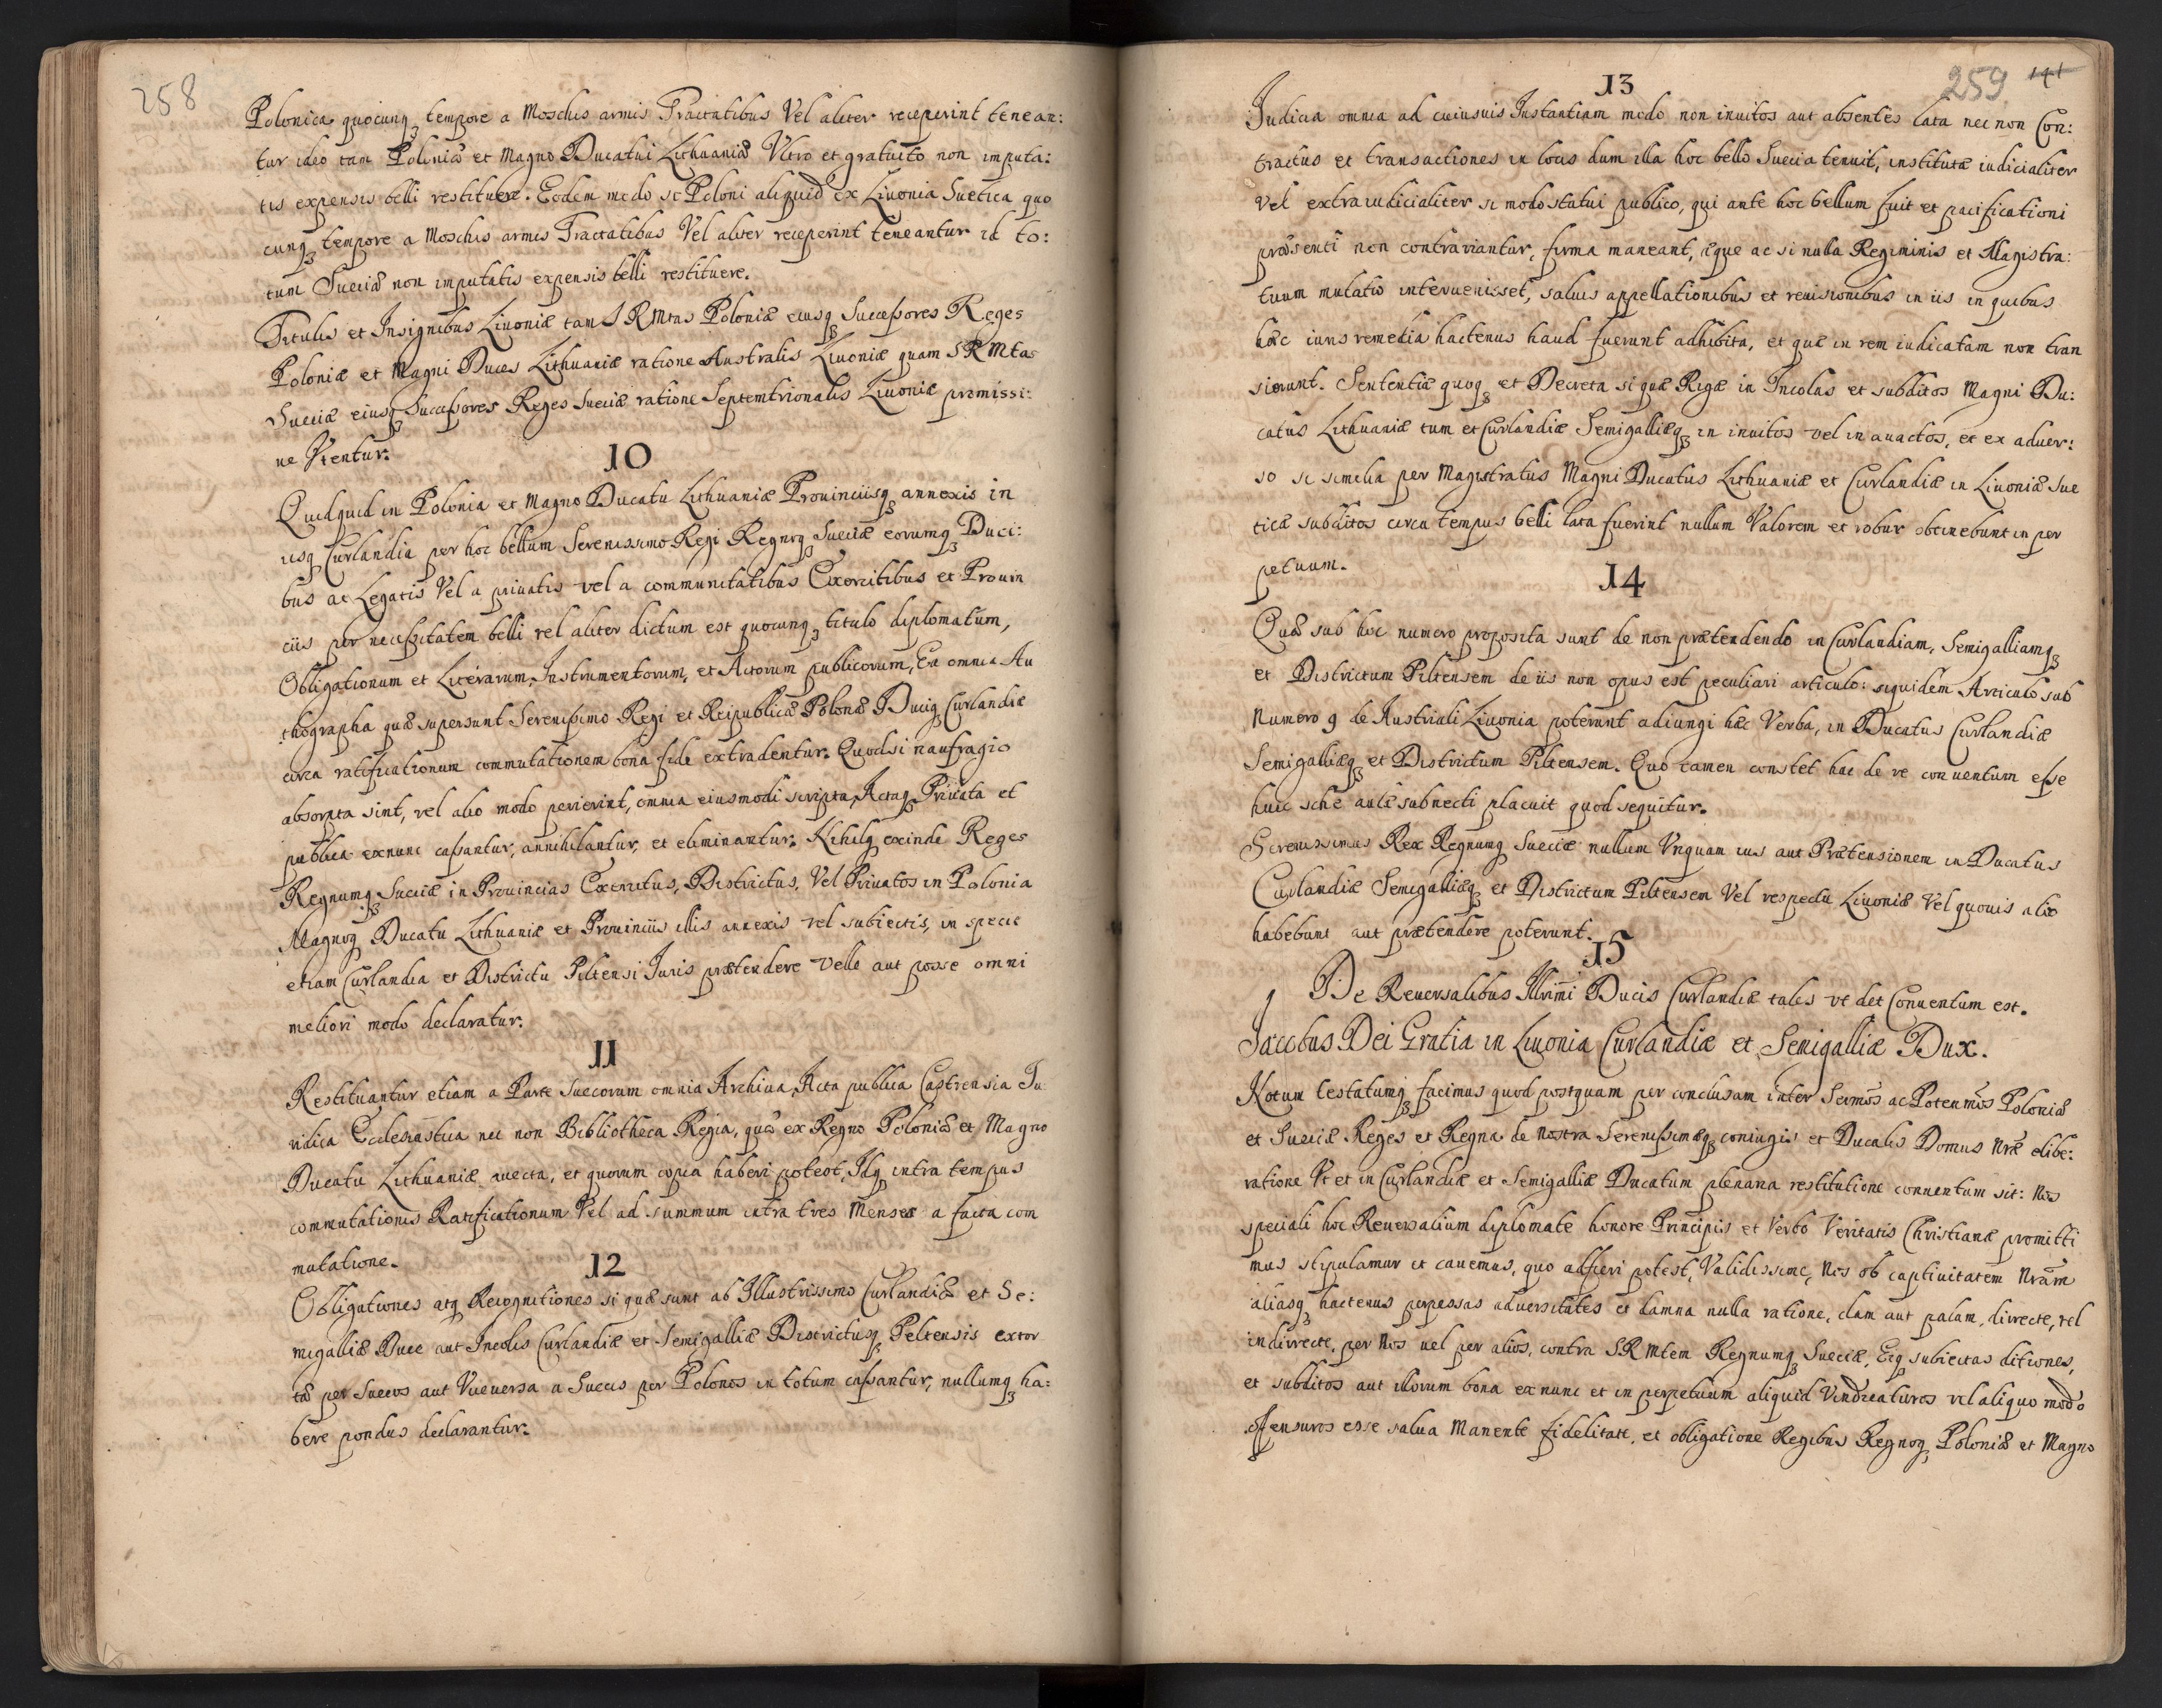 258
Polonica quocunq tempore a Moschis armis Tractatibus Vel aliter receperint tenean:
tur ideo tam Poloniæ et Magno Ducatui Lithuaniæ Vltro et gratuito non imputa:
tis expensis belli restituere. Eodem modo si Poloni aliquid ex Liuonia Suetica quo
cunq tempore a Moschis armis Tractatibus Vel aliter receperint teneantur id to:
tum Sueciæ non imputatis expensis belli restituere.
Titulis et Insignibus Liuoniæ tam S R Mtas Poloniæ eiusq Successores Reges
Poloniæ et Magni Duces Lithuaniæ ratione Australis Liuoniæ quam S R Mtas
Sueciæ eiusq Successores Reges Sueciæ ratione Septemtrionalis Liuoniæ promissi:
ne Vtentur.
10
Quidquid in Polonia et Magno Ducatu Lithuaniæ Prouinciisq annexis in
iisq Curlandia per hoc bellum Serenissimo Regi Regnoq Sueciæ eorumq Duci:
bus ac Legatis Vel a priuatis vel a communitatibus Exercitibus et Prouin
ciis per necessitatem belli vel aliter dictum est quocunq titulo diplomatum,
Obligationum et Literarum, Instrumentorum, et Actorum publicorum, Ea omnia Au
thographa quæ supersunt Serenissimo Regi et Reipublicæ Polonæ Duciq Curlandiæ
circa ratificationum commutationem bona fide extradentur. Quodsi naufragio
absorpta sint, vel alio modo perierint, omnia eiusmodi scripta, Actaq Priuata et
publica exnunc cassantur, annihilantur, et eliminantur. Nihilq exinde Reges
Regnumq Sueciæ in Prouincias Exercitus, Districtus, Vel Priuatos in Polonia
Magnoq Ducatu Lithuaniæ et Prouinciis illis annexis vel subiectis, in specie
etiam Curlandia et Districtu Piltensi Iuris prætendere velle aut posse omni
meliori modo declaratur.
11
Restituantur etiam a Parte Suecorum omnia Archiua, Acta publica Castrensia Iu
ridica Ecclesiastica nec non Bibliotheca Regia, quæ ex Regno Poloniæ et Magno
Ducatu Lithuaniæ auecta, et quorum copia haberi poteot, Idq intra tempus
commutationis Ratificationum Vel ad summum intra tres Menses a facta com
mutatione.
12
Obligationes atq Recognitiones si quæ sunt ab Illustrissimo Curlandiæ et Se:
migalliæ Duce aut Incolis Curlandiæ et Semigalliæ Districtusq Peltensis extor
tæ per Suecos aut Viceuersa a Suecis per Polonos in totum cassantur, nullumq ha:
bere pondus declarantur.
259 141
13
Iudicia omnia ad cuiusuis Instantiam modo non inuitos aut absentes lata nec non Con:
tractus et transactiones in locis dum illa hoc bello Suecia tenuit, institutæ iudicialiter
vel extraiudicialiter si modo statui publico, qui ante hoc bellum fuit et pacificationi
præsenti non contrariantur, firma maneant, æque ac si nulla Regiminis et Magistra:
tuum mutatio interuenisset, saluis appellationibus et reuisionibus in iis in quibus
hæc iuris remedia hactenus haud fuerunt adhibita, et quæ in rem iudicatam non tran
sierunt. Sententiæ quoq et Decreta si quæ Rigæ in Incolas et subditos Magni Du:
catus Lithuaniæ tum et Curlandiæ Semigalliæq in inuitos vel in auactos, et ex aduer:
so si similia per Magistratus Magni Ducatus Lithuaniæ et Curlandiæ in Liuoniæ Sue
ticæ subditos circa tempus belli lata fuerint nullum Valorem et robur obtinebunt in per
petuum.
14
Quæ sub hoc numero proposita sunt de non prætendendo in Curlandiam, Semigalliamq
et Districtum Piltensem de iis non opus est peculiari articulo: siquidem Articulo sub
Numero 9 de Australi Liuonia poterunt adiungi hæc Verba, in Ducatus Curlandiæ
Semigalliæq et Districtum Piltensem. Quo tamen constet hac de re conuentum esse
huic sche aulæ subnecti placuit quod sequitur.
Serenissimus Rex Regnumq Sueciæ nullum Vnquam ius aut Prætensionem in Ducatus
Curlandiæ Semigalliæq et Districtum Piltensem Vel respectu Liuoniæ Vel quouis alio
habebunt aut prætendere poterunt.
15
De Reuersalibus Illrimi Ducis Curlandiæ tales vt det Conuentum est.
Iacobus Dei Gratia in Liuonia Curlandiæ et Semigalliæ Dux.
Notum testatumq facimus quod postquam per conclusam inter Sermõs ac Potenmõs Poloniæ
et Sueciæ Reges et Regna de Nostra Serenissimæq coniugis et Ducalis Domus Nræ elibe:
ratione Vt et in Curlandiæ et Semigalliæ Ducatum plenaria restitutione conuentum sit: Nos
speciali hoc Reuersalium diplomate honore Principis et Verbo Veritatis Christianæ promitti
mus stipulamur et cauemus, quo adfieri potest, Validissime, Nos ob captiuitatem Nram
aliasq hactenus perpessas aduersitates et damna nulla ratione, clam aut palam, dirrecte, vel
indirrecte, per Nos uel per alios, contra S R Mtem Regnumq Sueciæ, Eiq subiectas ditiones,
et subditos aut illorum bona exnunc et in perpetuum aliquid Vindicaturos vel aliquo modo
offensuros esse salua Manente fidelitate, et obligatione Regibus Regnoq Poloniæ et Magno